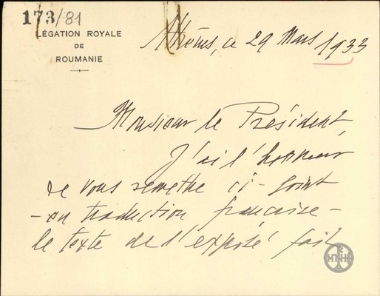 173/81
LÉGATION ROYALE
DE
ROUMANIE
Athènes, ce 29 Mars 1933
Monsieur le Président,
J'ai l'honneur
de vous remettre ci-joint
- en traduction française -
le texte de l'exposé fait